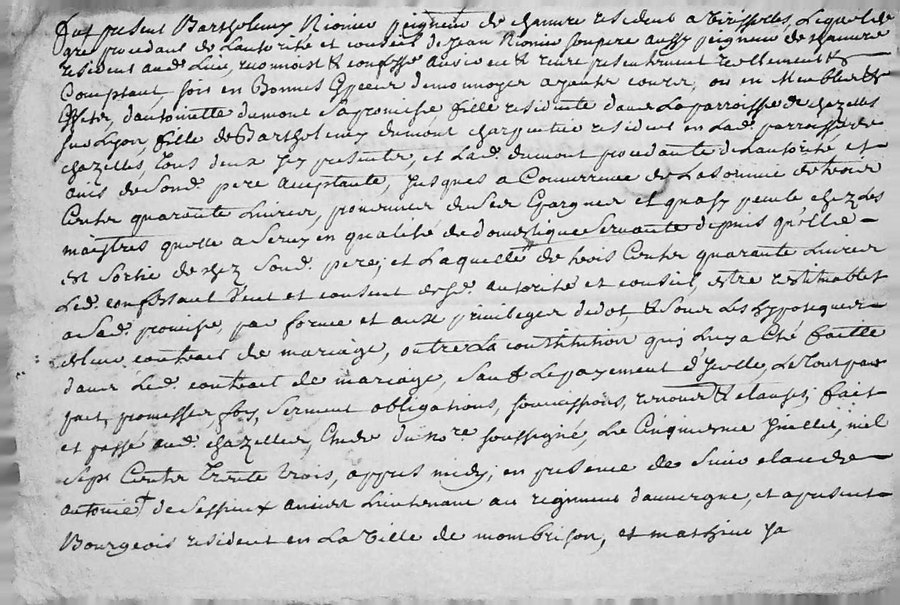 fut present Barthelemy Nionin peigneur de chanvre resident a Virisselles, Lequel de
gre procedant de L'autorité et conseil de Jean Nionin son pere aussy peigneur de chanvre
resident aud. Lieu, reconnoist & confesse avoir eu & receu presentement reellement &
Comptant, soit en Bonnes Espece de monnoye ayante cours, ou en Meubles &
Effets, d'antoinette dumont sa promise, fille residente dans La parroisse de chazelles
sur Lyon, fille de Barthelemy dumont charpentier resident en Lad. parroisse de
chazelles, tous deux icy presents, et Lad. dumont procedante de L'autorité et
avis de Sond. pere acceptante, Jusques a Concurrence de La somme de trois
Cents quarante Livres, provenus de ses Epargnes et quasy peculle chez Les
maistres quelle a Servy en qualité de domestique Servante depuis qu'elle
est Sortie de chez Sond. pere; et Laquelle de trois Cents quarante Livres
Led. confessant veut et consent desd. autorité et conseil, estre restituables
a Sad. promise, par forme et aux privileges de dot, & sous Les hypoteques
de Leur contract de mariage, outre La constitution qui Luy a Eté faitte
dans Led. contract de mariage, Sauf Le payement d'Icelle, Le tout par
pact, promesses, foy, Serment obligations, soumissions, renon. & clauses, fait
et passé aud. chazelles, Etude du no.re soussigné, Le Cinquieme Juillet, mil
Sept Cents trente trois, appres midy, en presence de Sieur claude
antoine de Lessieux ancien Lieutenant au regiment d'auvergne, et a present
Bourgeois resident en La Ville de monbrison, et mathieu Ja